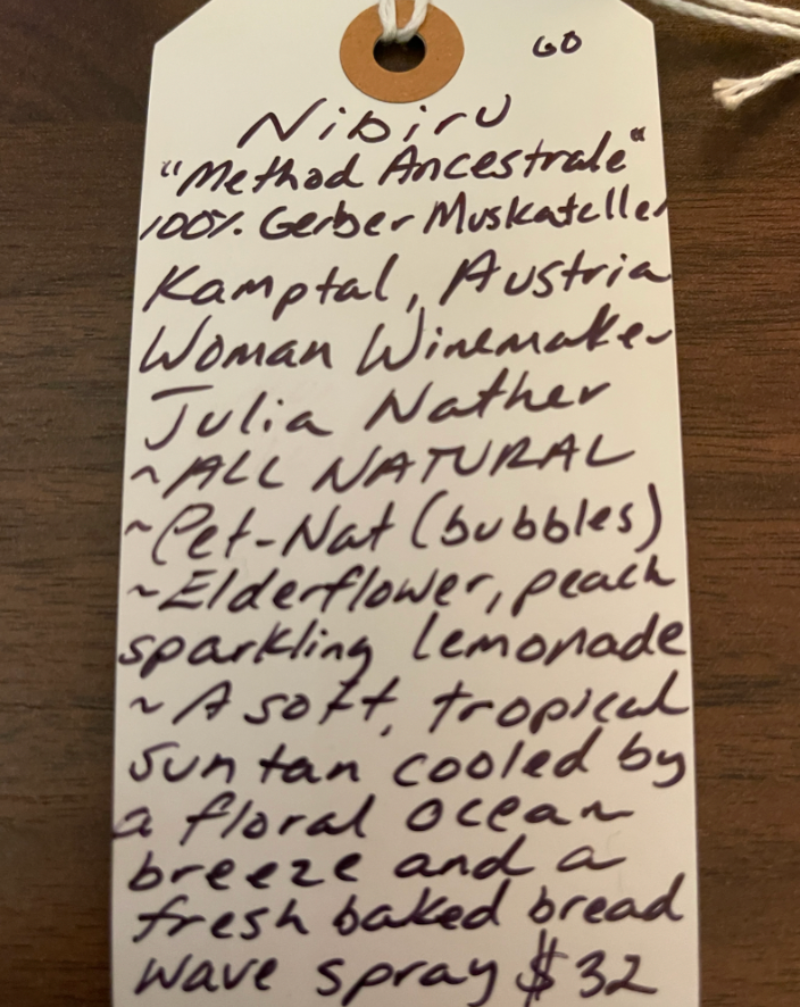 GO
Nibiru
"Method Ancestrale"
100% Gerber Muskateller
Kamptal, Austria
Woman Winemaker
Julia Nather
~ALL NATURAL
~Pet-Nat (bubbles)
~Elderflower, peach
sparkling lemonade
~A soft, tropical
sun tan cooled by
a floral ocean
breeze and a
fresh baked bread
wave spray $32